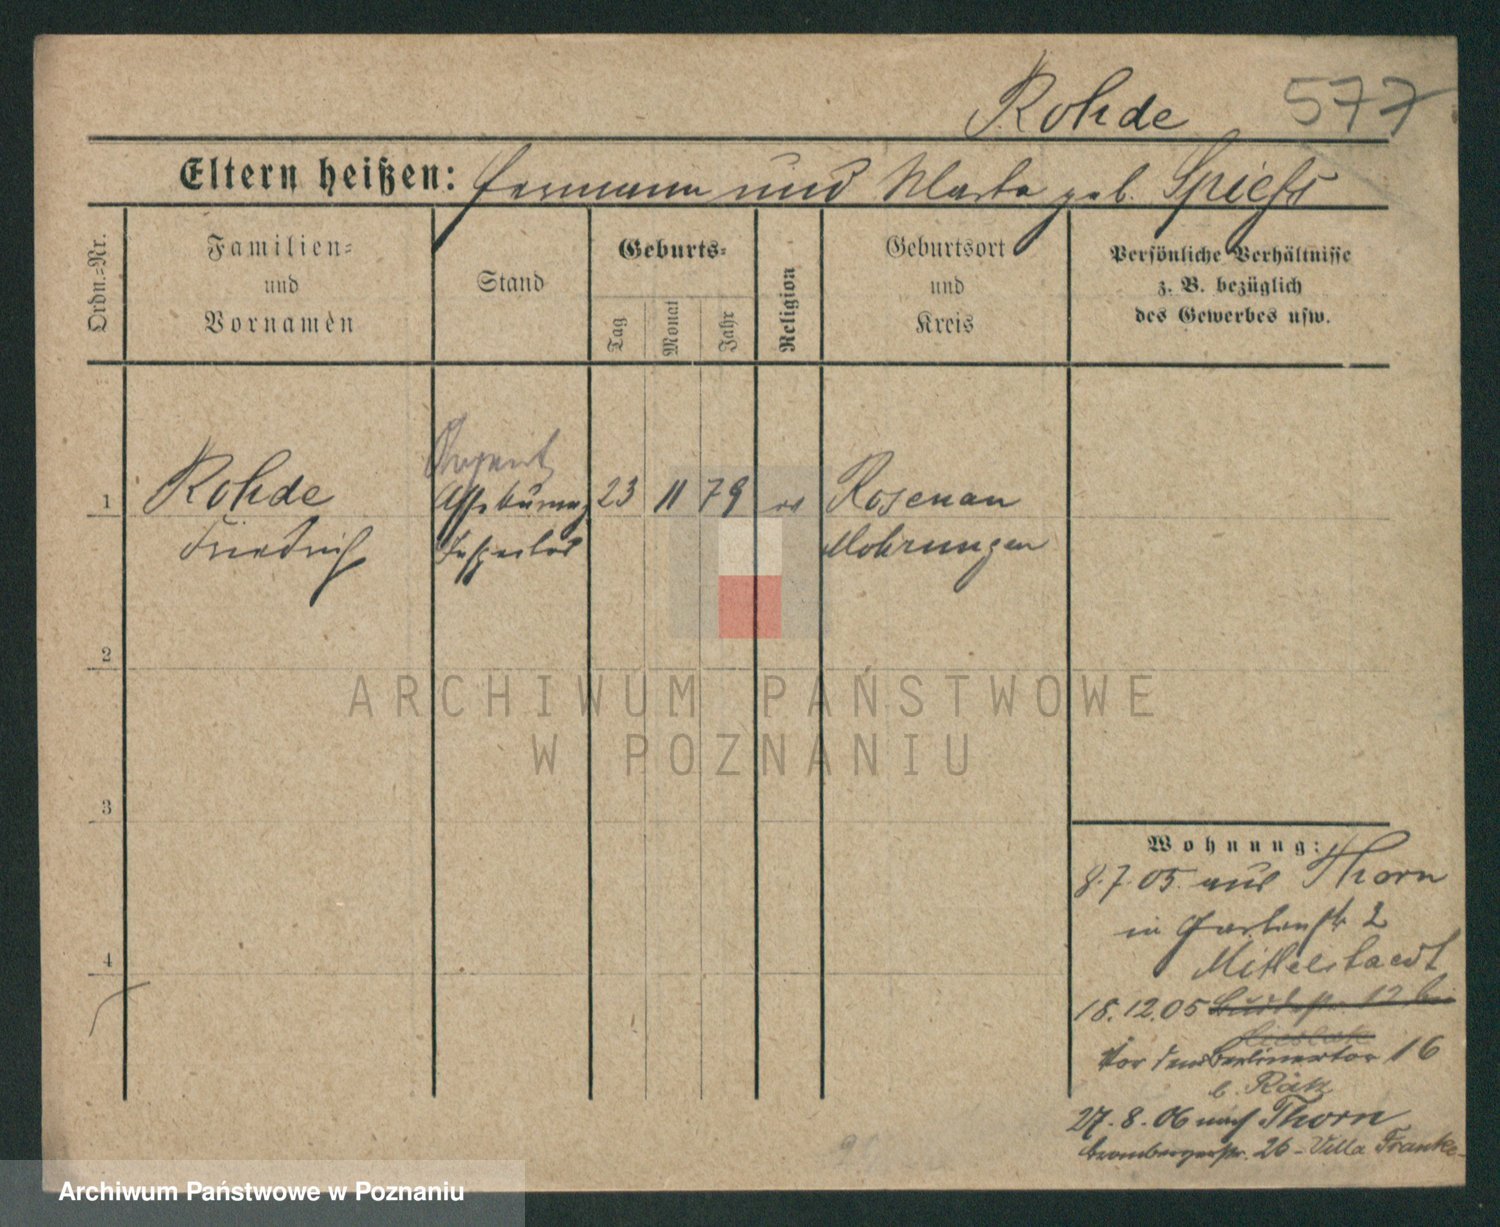 Rohde 577
Eltern heißen: Hermann und Marta geb. Spiehs
Ordn.=Nr.
Familien=
und
Vornamen
Stand
Geburts=
Tag
Monat
Jahr
Religion
Geburtsort
und
Kreis
Persönliche Verhältnisse
z. B. bezüglich
des Gewerbes usw.
1 Rohde 23 11 79 ev Rosenau
Friedrich Inspektor Mohrungen
2
3
4
Wohnung:
8.7.05 aus Thorn
in Gartenstr 2
Mittelstaedt
18.12.05
Vor dem Berlinertor 16
b. Rätz
27.8.06 nach Thorn
Brombergerstr. 26 - Villa Franke
ARCHIWUM PAŃSTWOWE
W POZNANIU
Archiwum Państwowe w Poznaniu